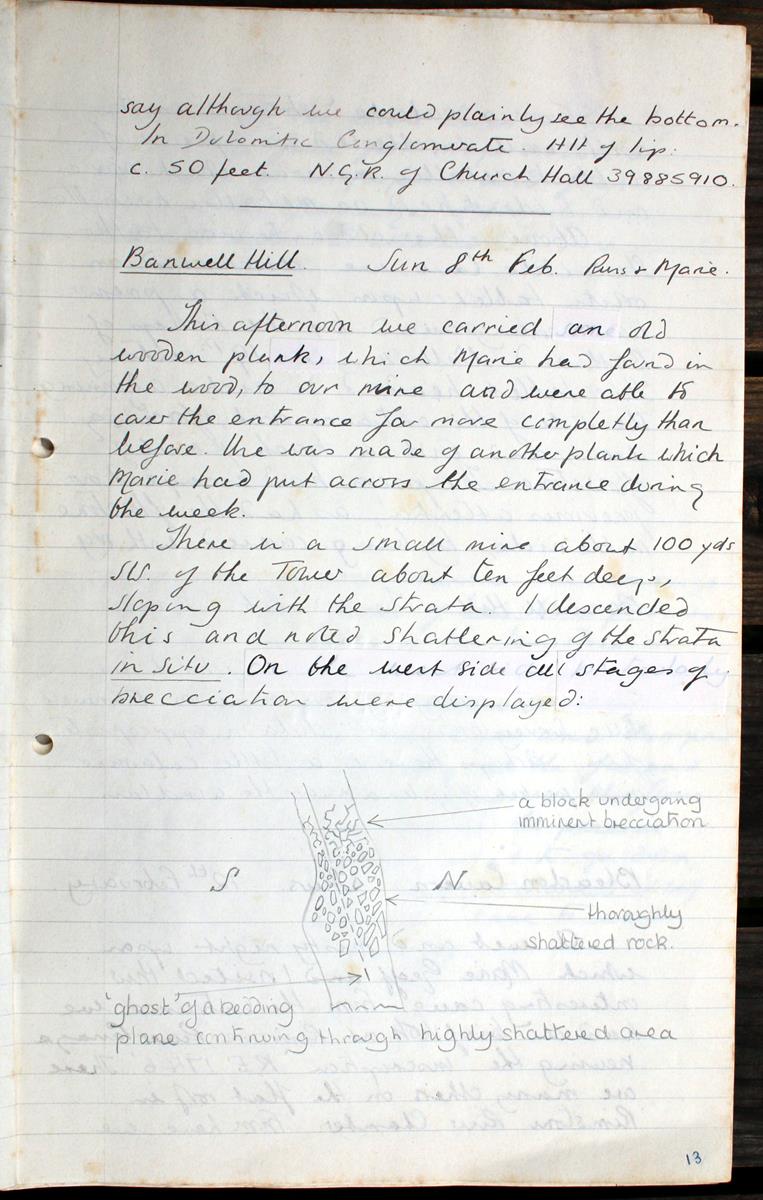 say although we could plainly see the bottom.
In Dolomitic Conglomerate. Alt of lip.
c. 50 feet. N.G.R. of Church Hall 39885910.
Banwell Hill. Sun 8th Feb. & Marie.
This afternoon we carried an old
wooden plank, which Marie had found in
the wood, to our mine and were able to
cover the entrance far more completly than
before. Use was made of another plank which
Marie had put across the entrance during
the week.
There is a small mine about 100 yds
SW. of the Tower about ten feet deep,
sloping with the strata. I descended
this and noted shattering of the strata
in situ. On the west side all stages of
brecciation were displayed:
a block undergoing
imminent brecciation
S N
thoroughly
shattered rock.
'ghost' of a bedding
plane continuing through highly shattered area
13